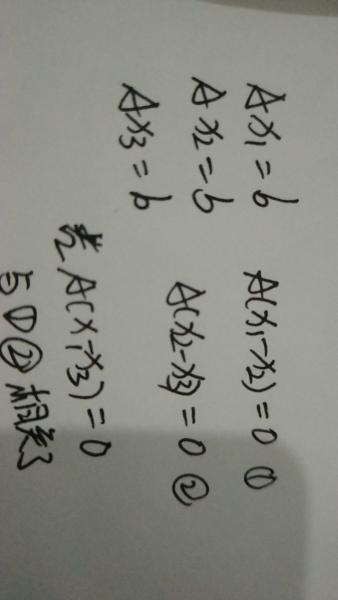 Ax₁ = b
Ax₂ = b
Ax₃ = b
A(x₁-x₂) = 0 ①
A(x₂-x₃) = 0 ②
A(x₁-x₃) = 0
与①②相关了